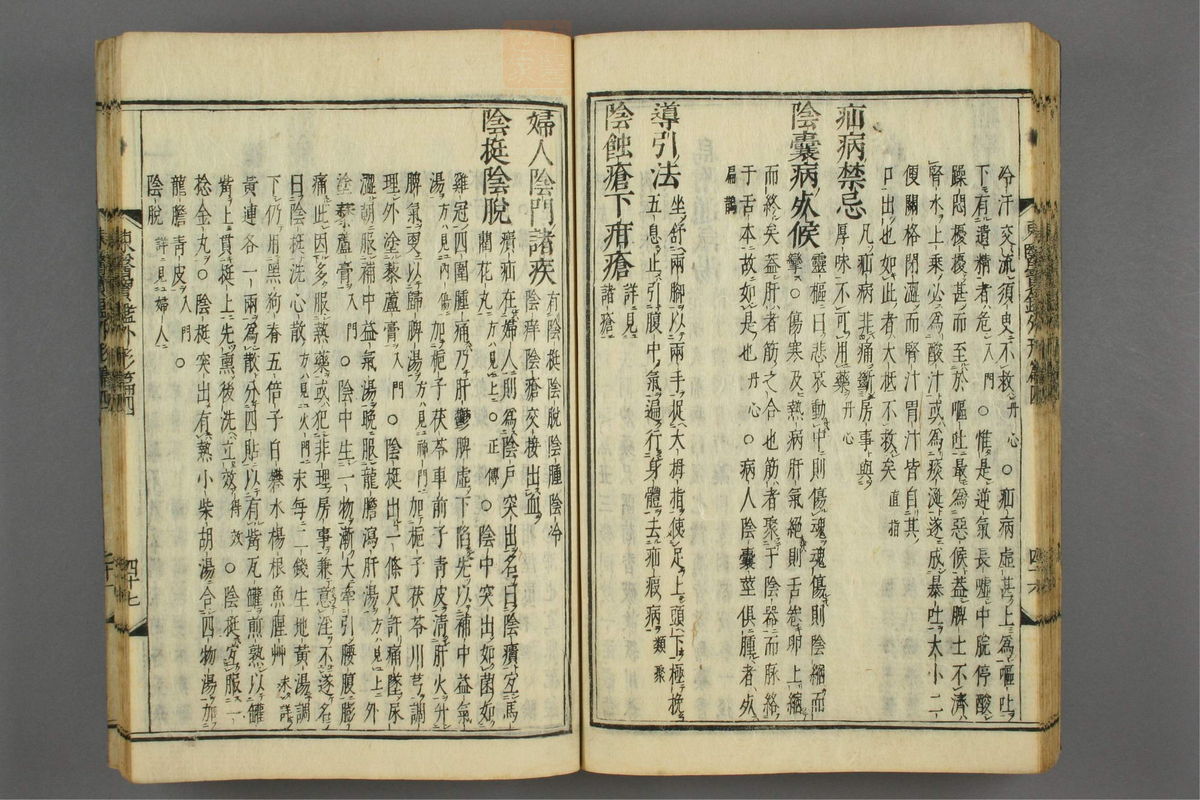 分汗交流須臾不救丹心○疝病虛甚上爲嘔吐
下有遺精者危入門○惟是逆氣長噓中脘停酸
躁悶擾擾甚而至於嘔吐最爲惡候蓋脾土不濟
腎水上乘必爲酸汁或爲痰涎遂成暴吐大小二
便關格閉澁而腎汁胃汁皆自其
口出也如此者大抵不救矣直指
疝病禁忌
凡疝病非痛斷房事與
厚味不可用藥丹心
陰囊病死候
靈樞曰悲哀動中則傷魂魂傷則陰縮而
攣○傷寒及熱病肝氣絶則舌卷卵上縮
而終矣蓋肝者筋之合也筋者聚于陰器而脉絡
于舌本故如是也丹心○病人陰囊莖俱腫者死
扁鵲
導引法
坐舒兩脚以兩手捉大拇指使足上頭下極挽
五息止引腹中氣遍行身體去疝瘕病類聚
陰蝕瘡下疳瘡
詳見
諸瘡
東醫寶鑑外形篇四
四十六
婦人陰門諸疾
有陰挺陰脫陰腫陰冷
陰痒陰瘡交接出血
陰挺陰脫
㿗疝在婦人則爲陰戶突出名曰陰㿗宜馬
藺花丸方見上○正傳○陰中突出如菌如
雞冠四圍腫痛乃肝鬱脾虛下陷先以補中益氣
湯方見內傷加梔子茯苓車前子青皮淸肝火升
脾氣更以歸脾湯方見神門加梔子茯苓川芎調
理外塗藜蘆膏入門○陰挺出一條尺許痛墜尿
澁朝服補中益氣湯晩服龍膽瀉肝湯方見上外
塗藜蘆膏入門○陰中生一物漸大牽引腰腹膨
痛此因多服熱藥或犯非理房事兼意淫不遂名
曰陰挺洗心散方見火門末每二錢生地黃湯調
下仍用黑狗脊五倍子白礬水楊根魚腥艸未詳
黃連各一兩爲散分四貼以有觜瓦罐煎熟以罐
觜上貫挺上先熏後洗立效得效○陰挺宜服一
捻金丸○陰挺突出有熱小柴胡湯合四物湯加
龍膽青皮入門○
陰脫詳見婦人
東醫寶鑑外形篇四
四十七